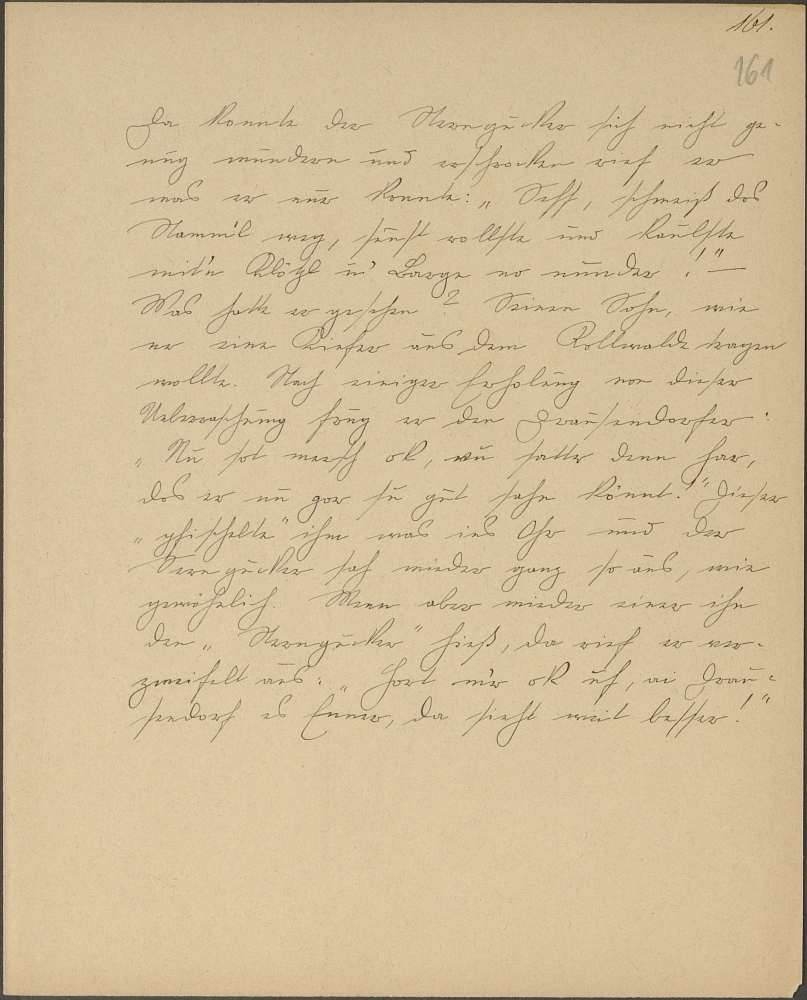 161.
161
Da konnte der Sterngucker sich nicht ge-
nug wundern und erschrocken rief er
was er nur konnte: „Seff, schmeiß dos
Stamm'l weg, sunst rollste und kaulste
mit'n Klötzl u' Barge no nunder!" —
Was hatte er gesehen? Seinen Sohn, wie
er eine Kiefer aus dem Rollwalde tragen
wollte. Nach einiger Erholung von dieser
Ueberraschung frug er den Grausendorfer:
„Nu sot mersch ok, wu hatter denn har,
dos er nu gor su gut sahn könnt?" Dieser
„pfischelte" ihm was ins Ohr und der
Sterngucker sah wieder ganz so aus, wie
gewöhnlich. Wenn aber wieder einer ihn
den „Sterngucker" hieß, da rief er ver-
zweifelt aus: „Hort mir ok uf, ai Grau-
sendorf is Enner, da sieht weit besser!"